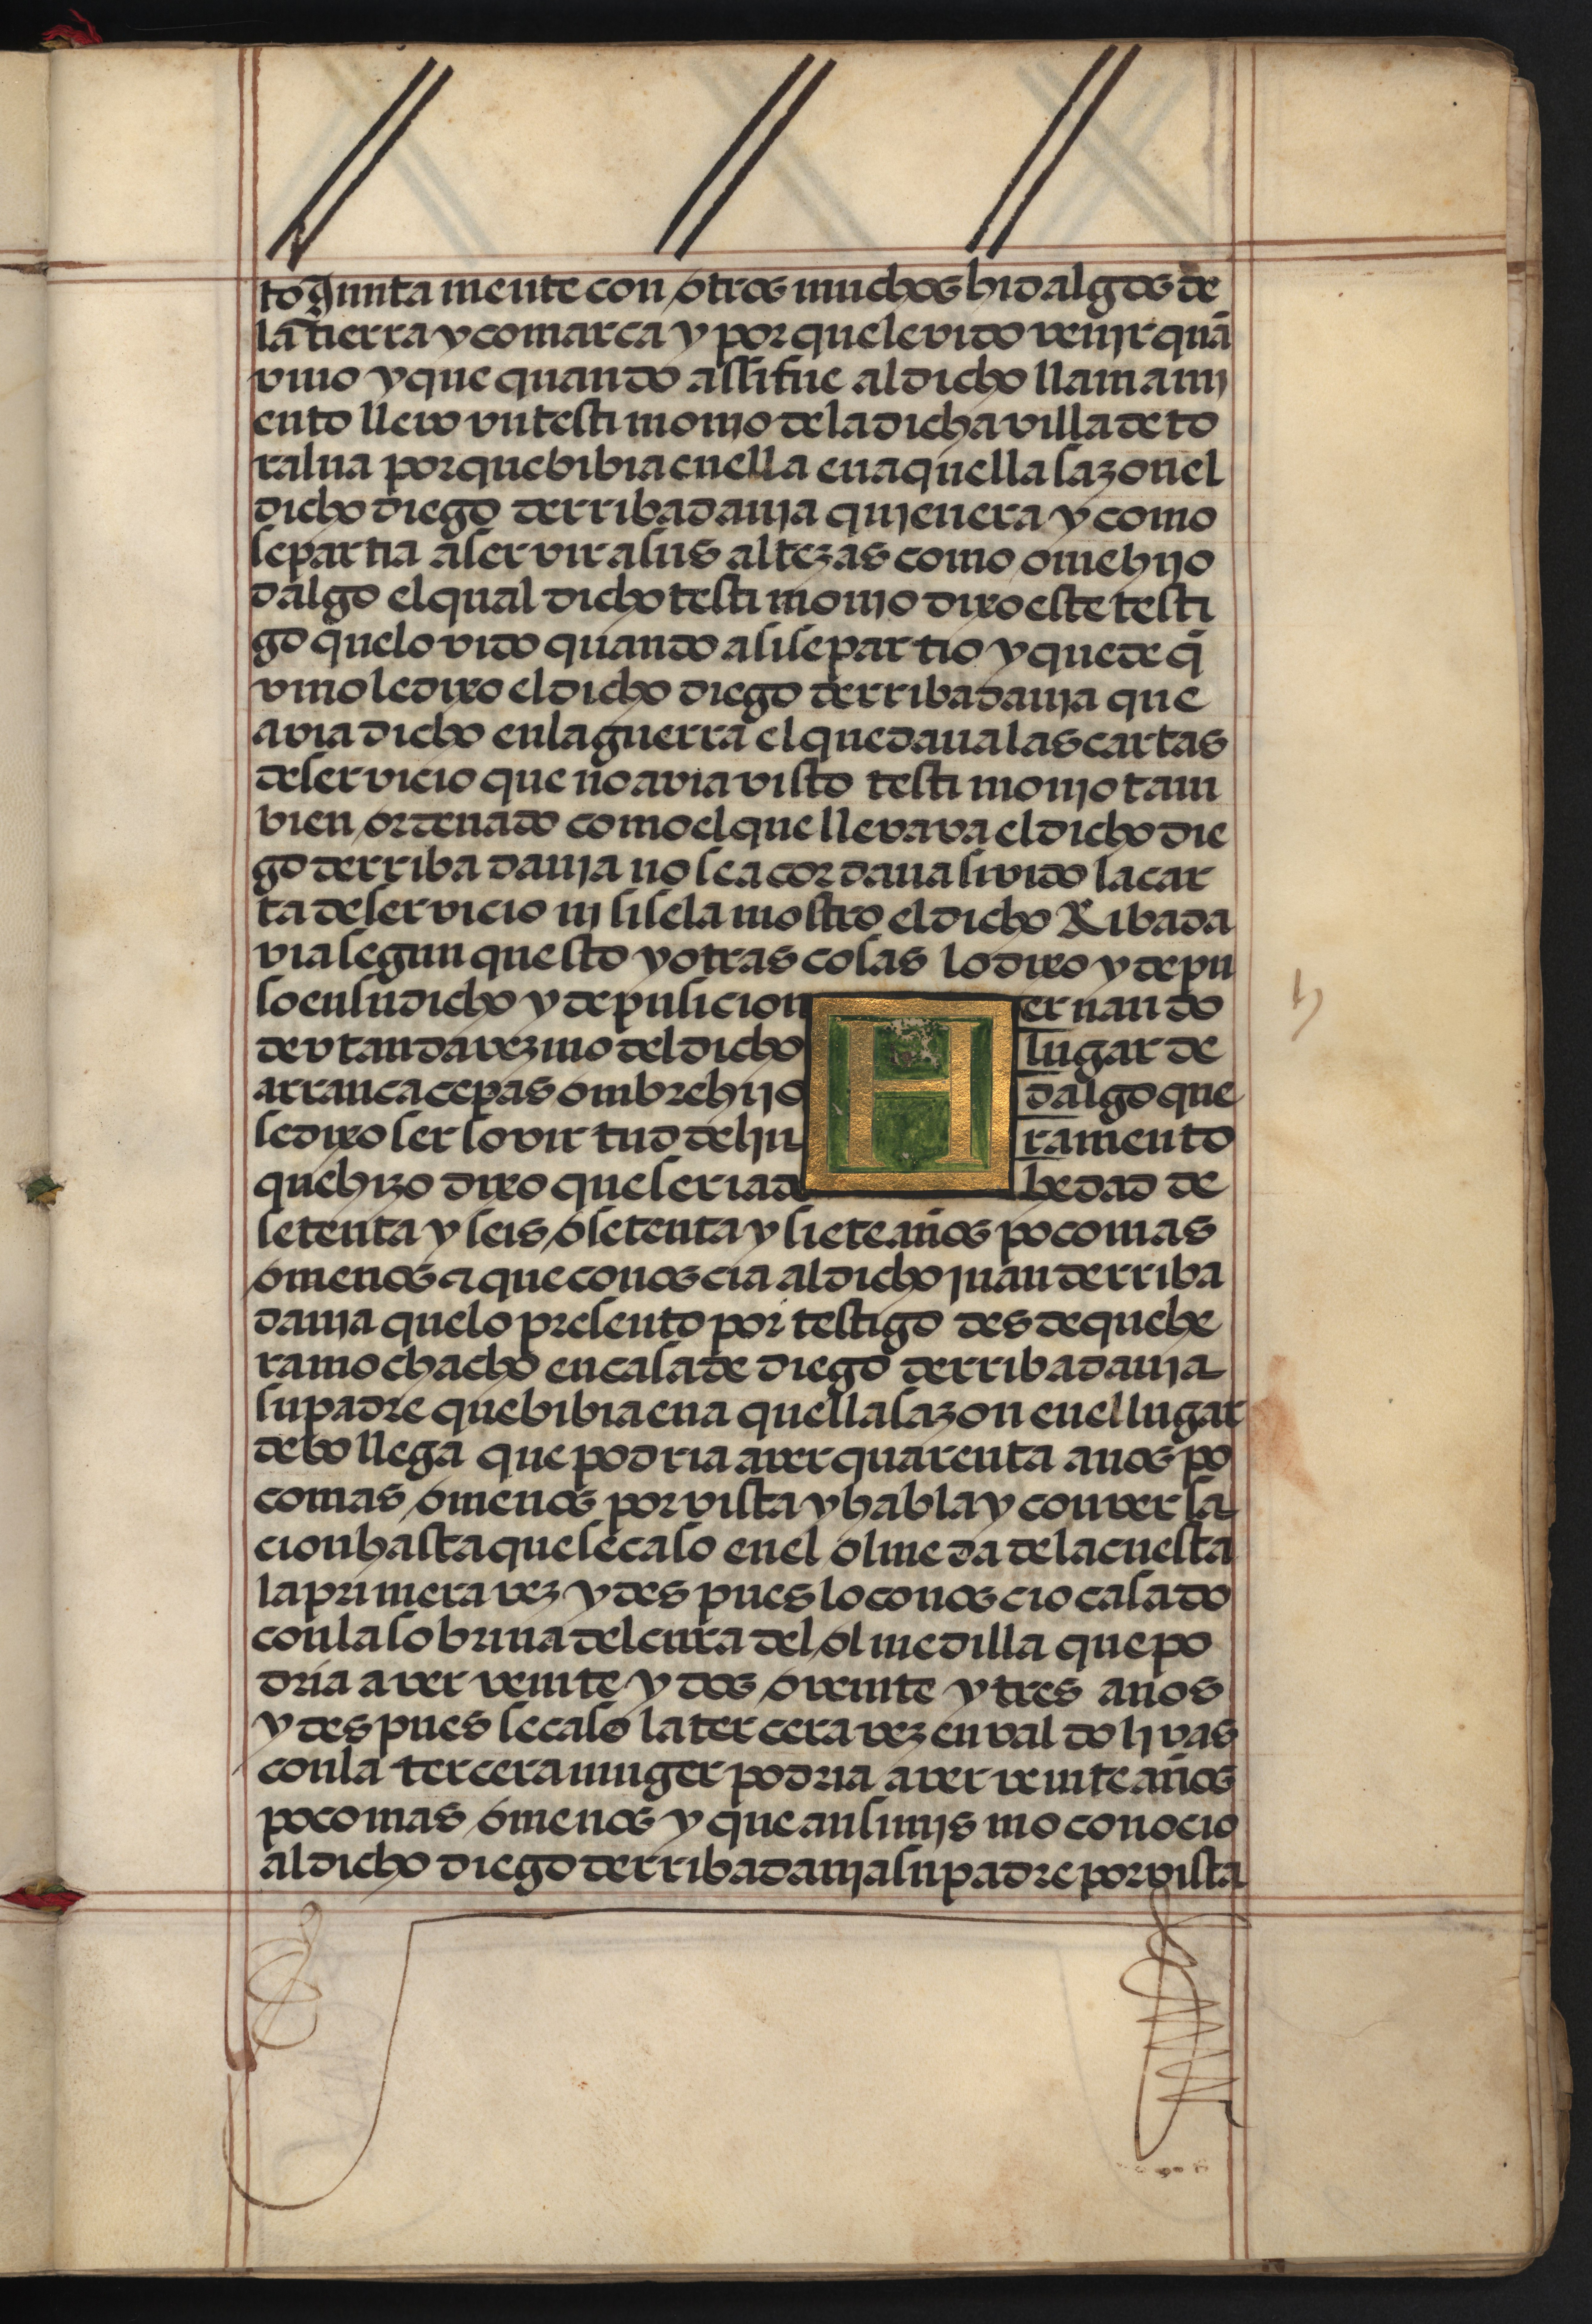 to Junta mente con otros muchos hidalgos de
la tierra y comarca y por que le vido venir quā
vino y que quando assi fue al dicho llamami
ento llevo un testimonio de la dicha villa de to
ralua por que bibia en ella en aquella sazon el
dicho diego derribadauia quien era y como
se partia a servir a sus altezas como ome hijo
dalgo el qual dicho testimonio dixo este testi
go que lo vido quando asi se partio y que de q̄
vino le dixo el dicho diego derribadauia que
avia dicho en la guerra el que daua las cartas
de servicio que no avia visto testimonio tam
bien ordenado como el que llevava el dicho die
go derribadauia no se acordaua si vido la car
ta de servicio ni si se la mostro el dicho Ribada
via segun questo y otras cosas lo dixo y depu
so en su dicho y depusicion Hernando
de utanda vezino del dicho lugar de
arrancacepas ombre hijo dalgo que
se dixo ser so virtud del ju ramento
que hizo dixo que seria de hedad de
setenta y seis o setenta y siete años poco mas
o menos & que conoscia al dicho juan derriba
dauia que lo presento por testigo desde que he
ra mochacho en casa de diego derribadauia
su padre que bibia en aquella sazon en el lugar
de bollega que podria aver quarenta años po
co mas o menos por vista y habla y conversa
cion hasta que se caso en el olmeda de la cuesta
la primera vez y despues lo conoscio casado
con la sobrina del cura del olmedilla que po
dria aver veinte y dos o veinte y tres anos
y despues se caso la tercera vez en valdolivas
con la tercera muger podria aver veinte años
poco mas o menos y que ansimismo conocio
al dicho diego derribadauia su padre por vista